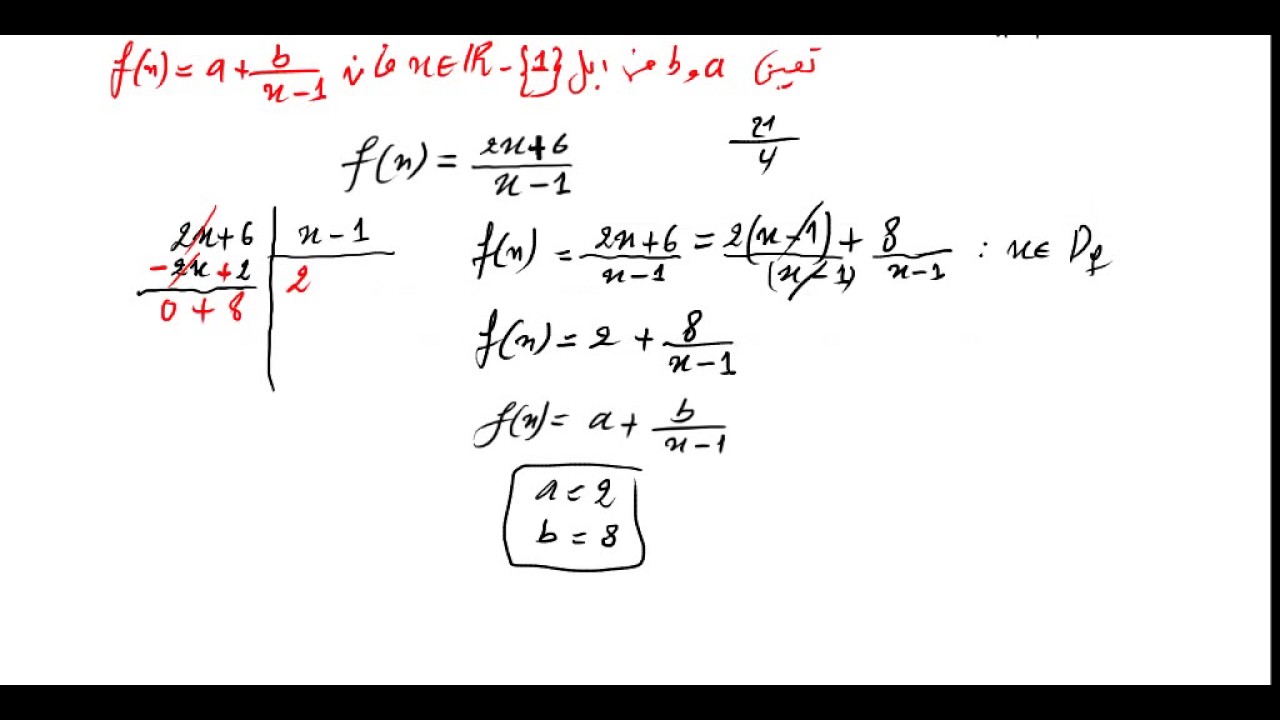 تعيين a و b من أجل x∈ℝ-{1} فإن f(x) = a + b/(x-1)
f(x) = (2x+6)/(x-1)
21/4
2x+6 | x-1
-2x+2 | 2
0 + 8
f(x) = (2x+6)/(x-1) = 2(x-1)/(x-1) + 8/(x-1) : x∈ D_f
f(x) = 2 + 8/(x-1)
f(x) = a + b/(x-1)
a = 2
b = 8